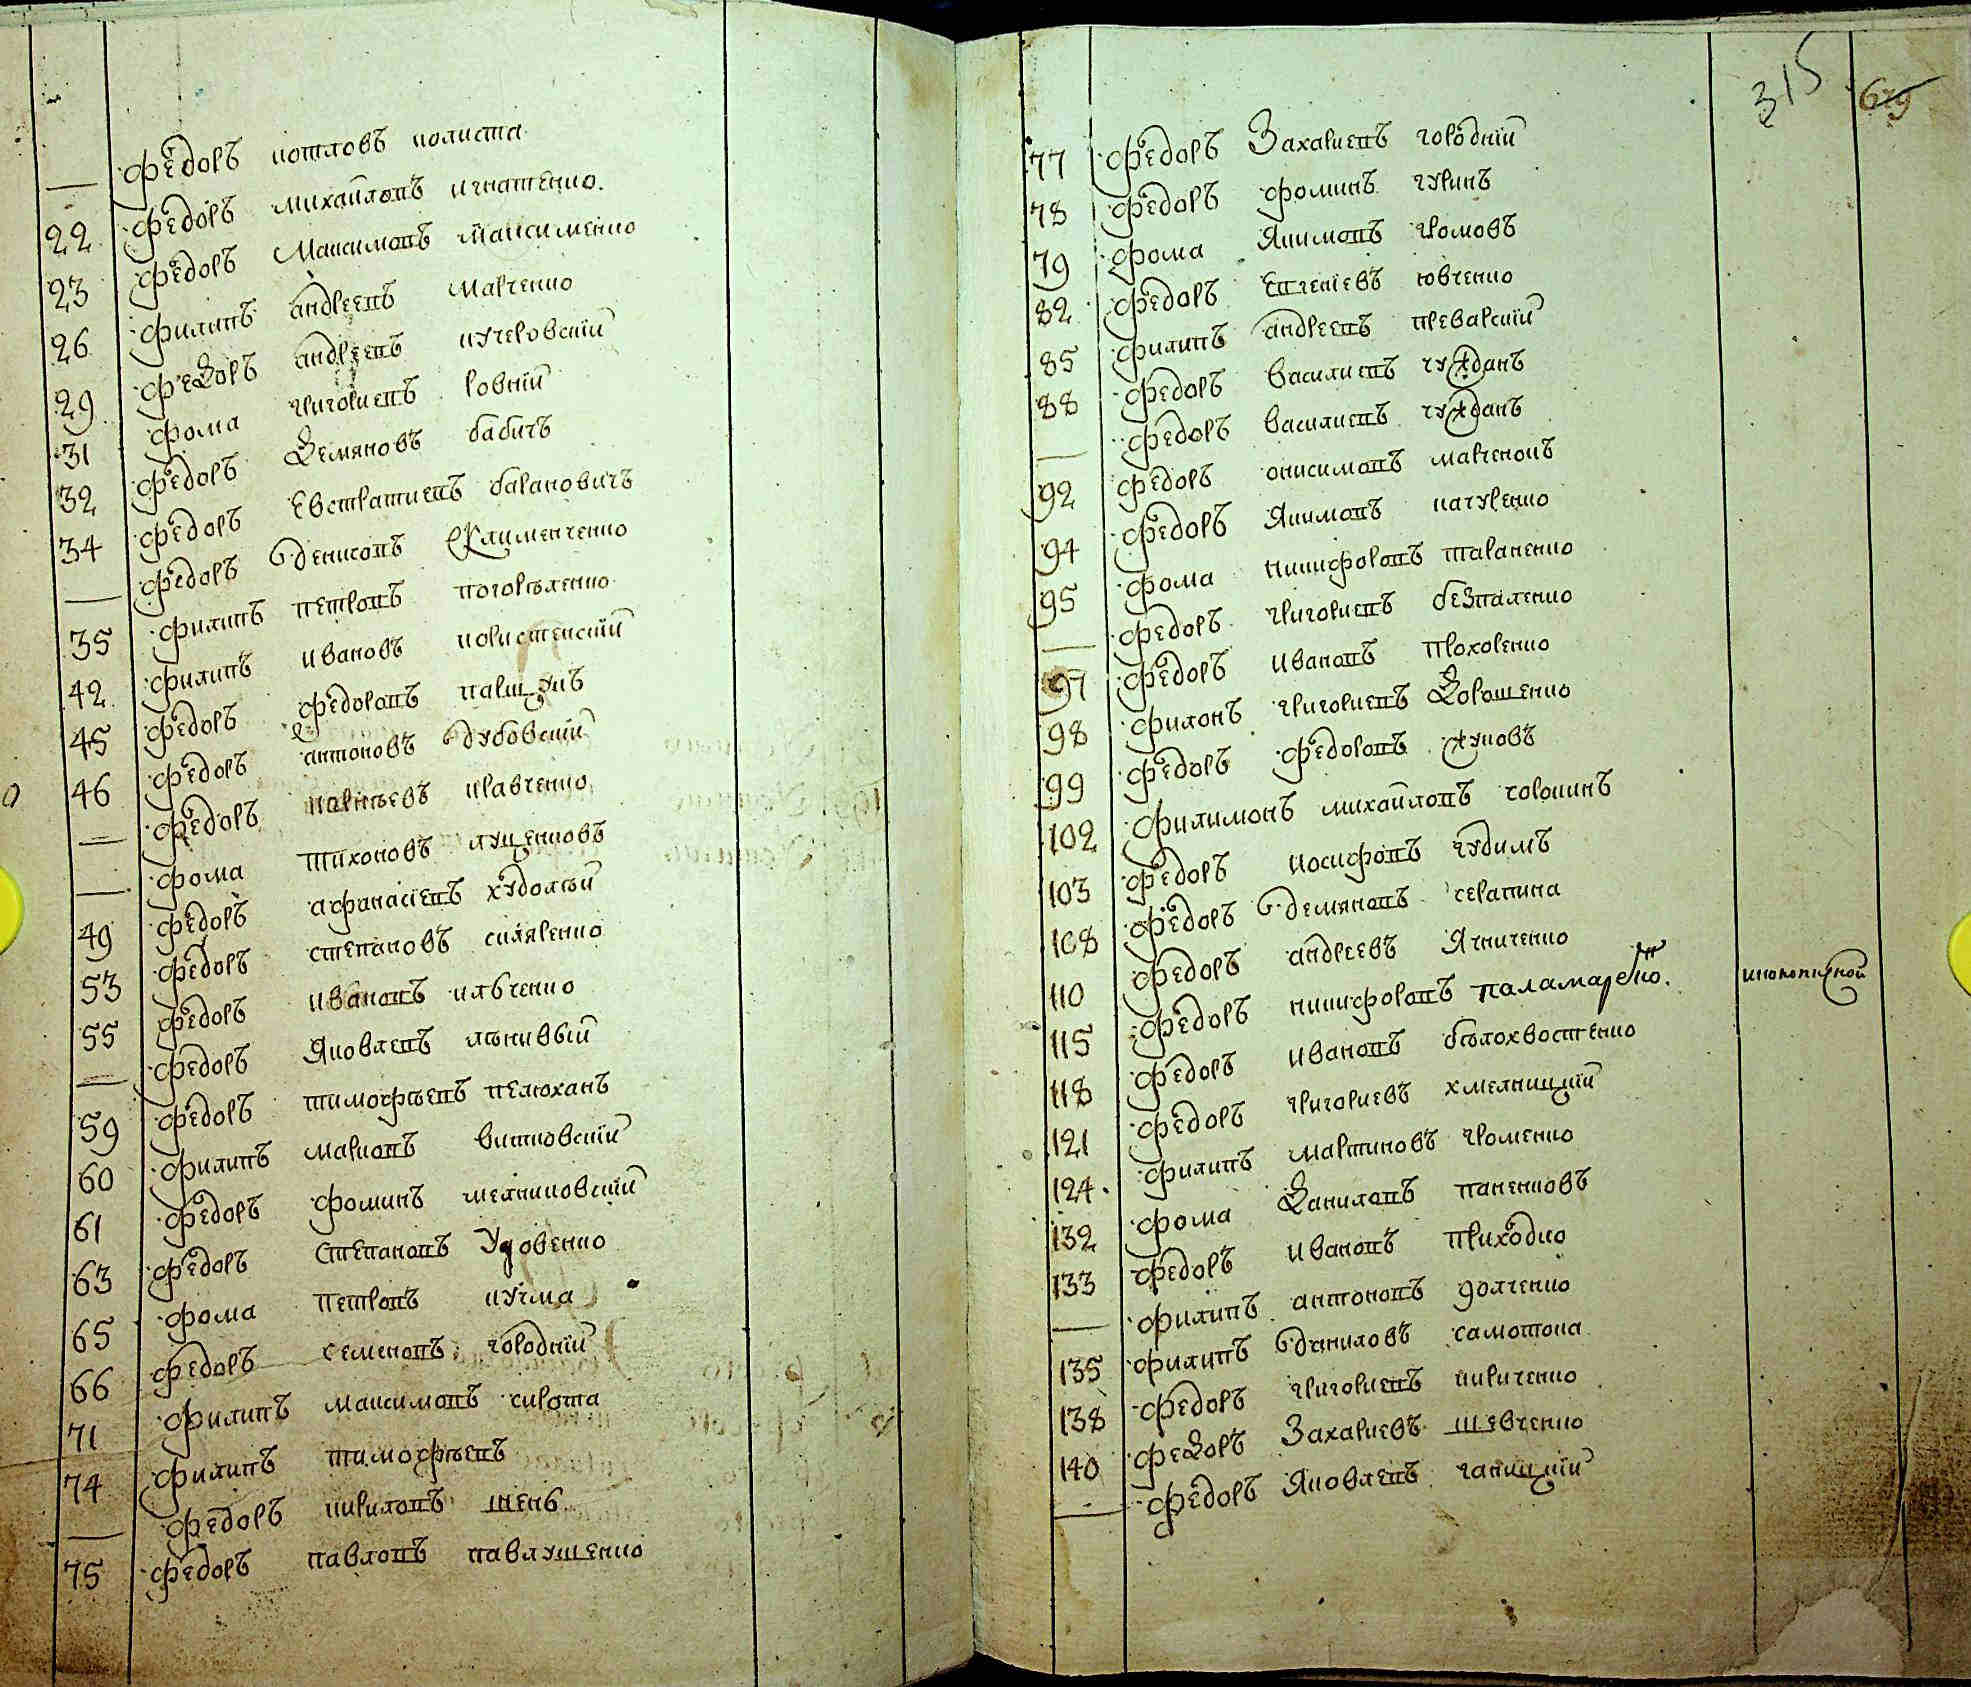 — Федоръ котловъ колиста
22 Федоръ михайловъ игнатенко.
23 Федоръ Максимовъ Максименко
26 Филипъ андреевъ Марченко
29 Федоръ андреевъ кучеровский
31 Фома григориевъ ровний
32 Федоръ Демяновъ бабичъ
34 Федоръ Евстратиевъ баrановичъ
— Федоръ денисовъ Клименченко
35 Филипъ петровъ погорѣленко
42 Филипъ ивановъ користенский
45 Федоръ федоровъ паршукъ
46 Федоръ антоновъ дубовский
— Федоръ карпѣевъ кравченко
— Фома тихоновъ луценковъ
49 Федоръ афанасіевъ худолѣй
53 Федоръ степановъ скляренко
55 Федоръ ивановъ кравченко
— Федоръ Яковлевъ лѣнивый
59 Федоръ тимофѣевъ пелюханъ
60 Филипъ марковъ витковский
61 Федоръ фоминъ мелниковский
63 Федоръ Степановъ Удовенко
65 Фома петровъ кучма
66 Федоръ семеновъ городний
71 Филипъ максимовъ сирота
74 Филипъ тимофѣевъ
— Федоръ кириловъ шень
75 Федоръ павловъ павлушенко
315 629
77 Федоръ Захариевъ городний
78 Федоръ фоминъ гуринъ
79 Фома Якимовъ громовъ
82 Федоръ Евгеніевъ ювченко
85 Филипъ андреевъ преварский
88 Федоръ василиевъ гужданъ
— Федоръ василиевъ гужданъ
92 Федоръ онисимовъ марченокъ
94 Федоръ Якимовъ качуренко
95 Фома никифоровъ тараненко
— Федоръ григориевъ безпаленко
97 Федоръ ивановъ прохоренко
98 Филонъ григориевъ Дорошенко
99 Федоръ федоровъ жуковъ
102 Филимонъ михайловъ горкинъ
103 Федоръ иосифовъ гудимъ
108 Федоръ демяновъ серапина
110 Федоръ андреевъ Ягниченко
115 Федоръ никифоровъ паламаренко. инокописной
118 Федоръ ивановъ бѣлохвостенко
121 Федоръ григориевъ хмелницкий
124. Филипъ мартиновъ громенко
132 Фома Даниловъ паненковъ
133 Федоръ ивановъ приходко
— Филипъ антоновъ долченко
135 Филипъ даниловъ самотока
138 Федоръ григориевъ кириченко
140 Федоръ Захариевъ шевченко
— Федоръ Яковлевъ галицкий